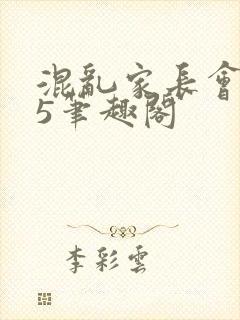 混亂家長會
5筆趣閣
李彩雲